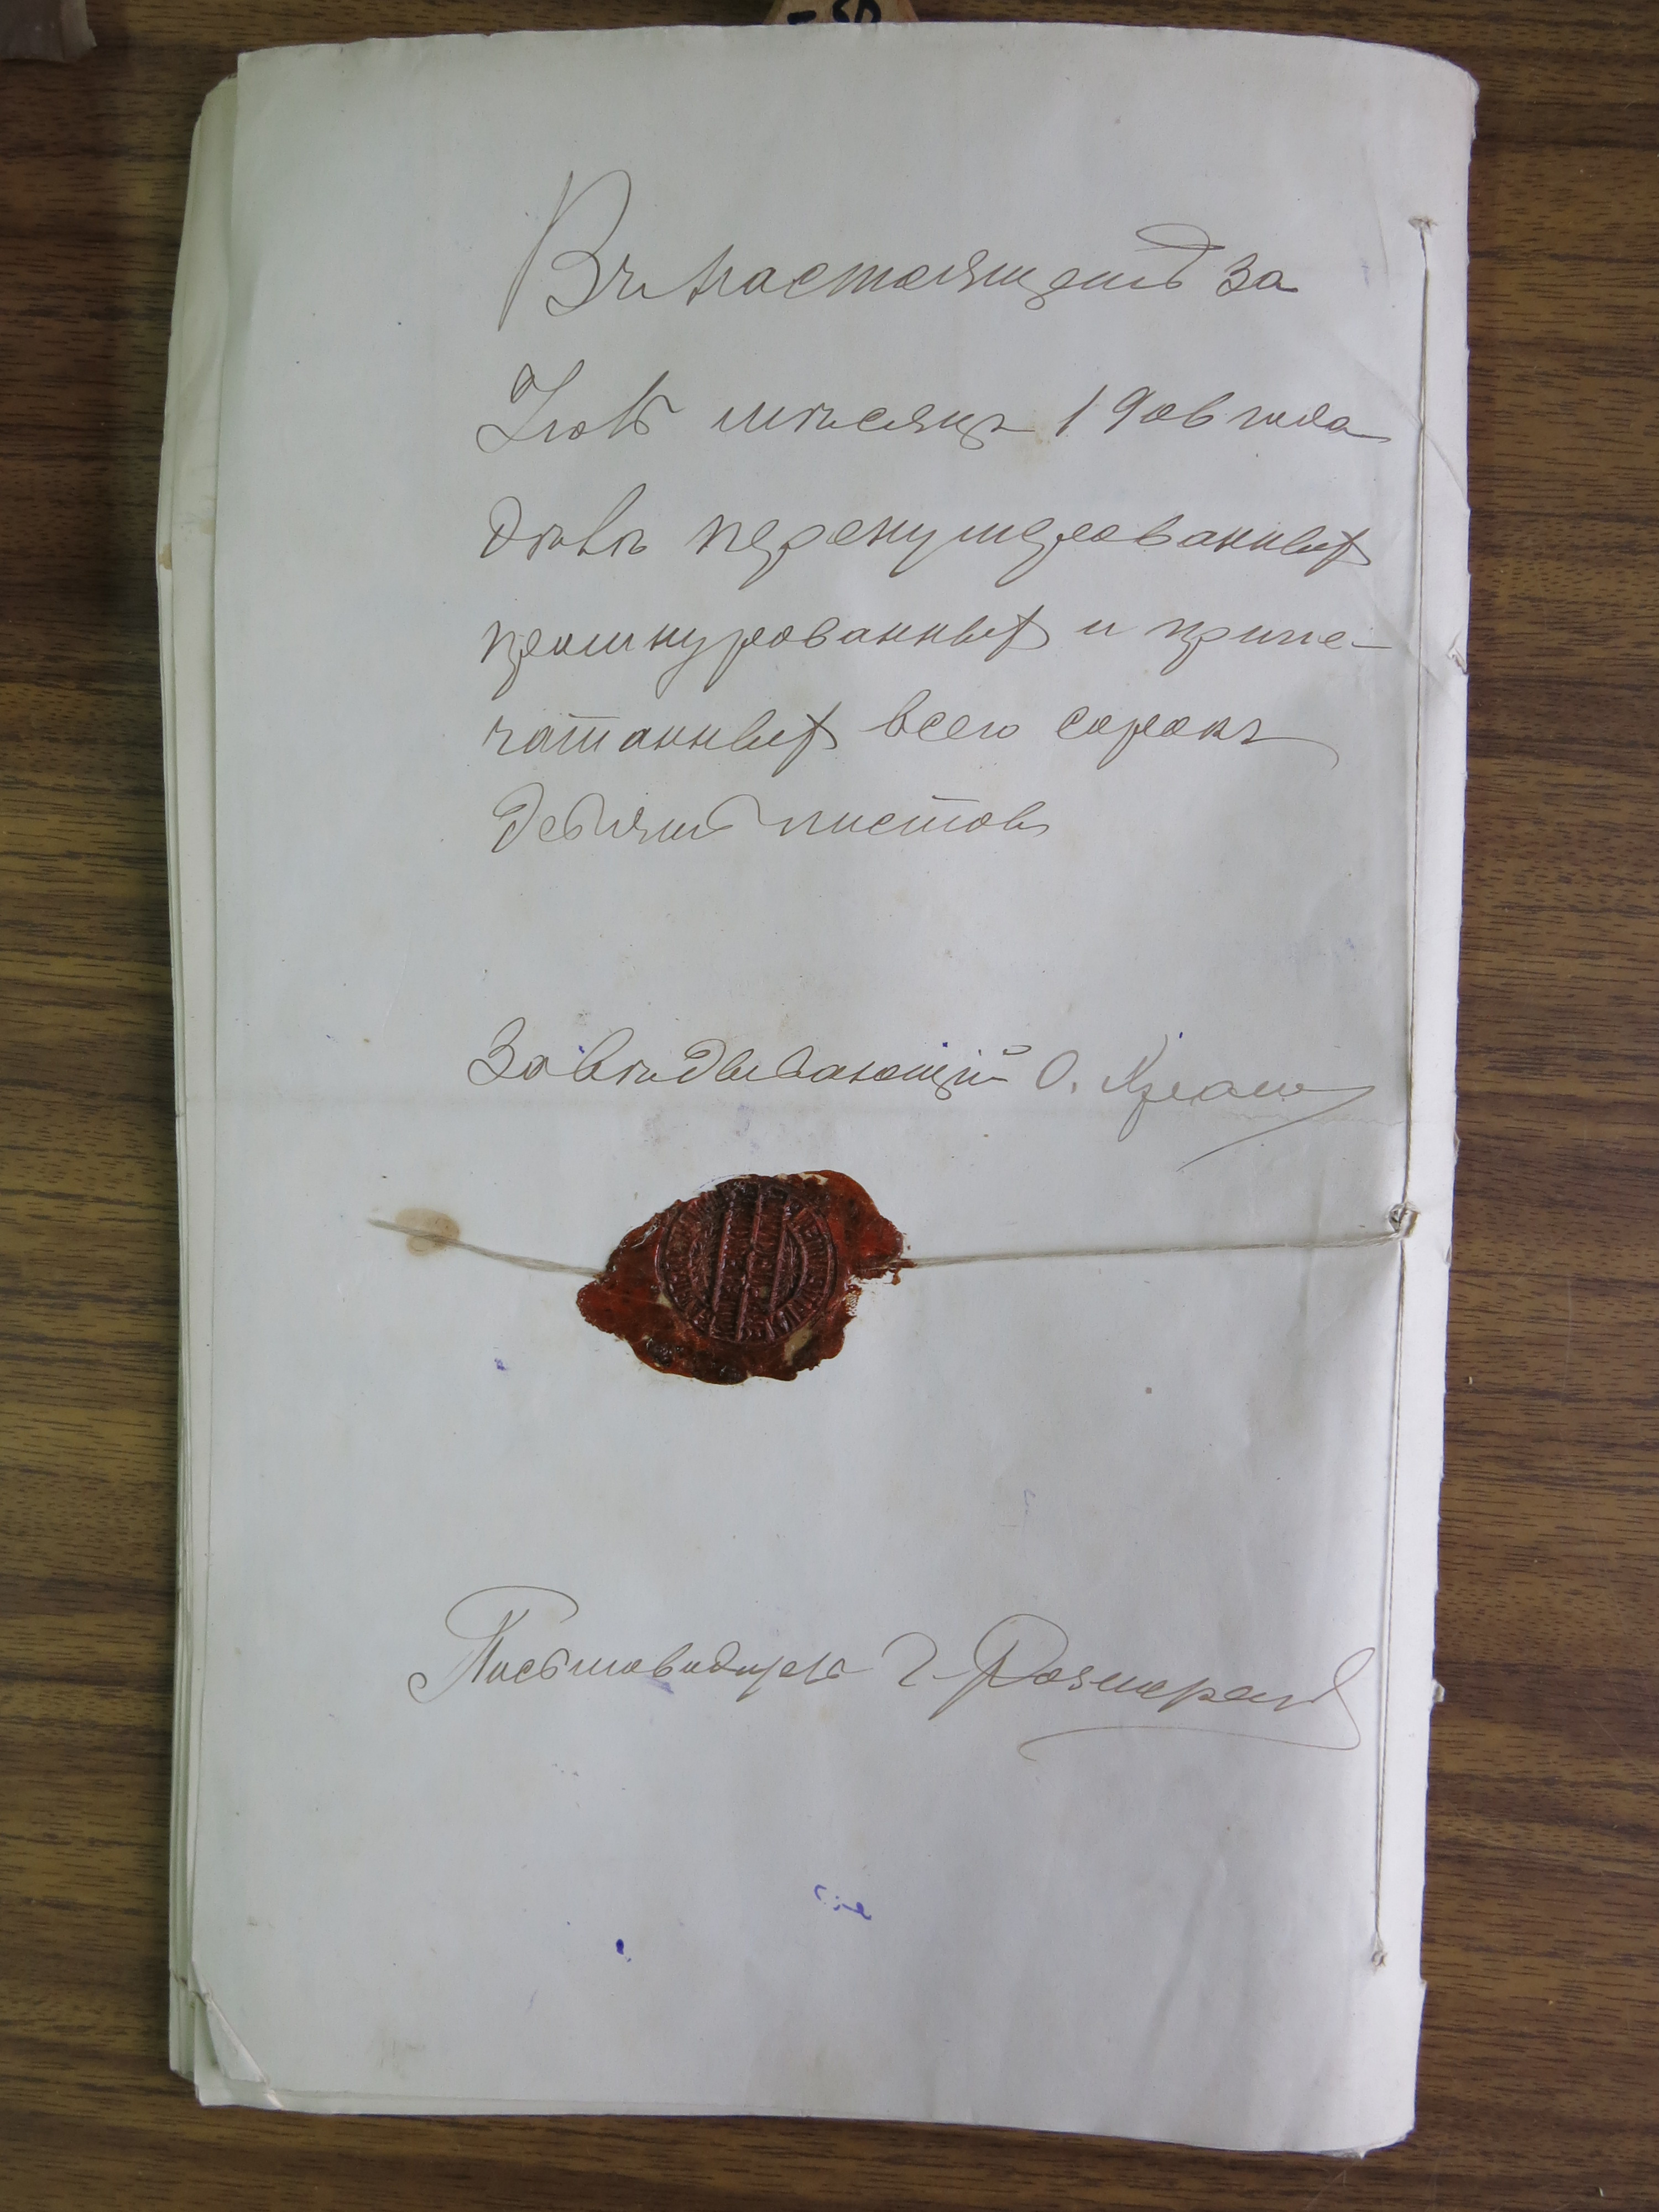 Въ настоящемъ за
Іюль мѣсяцъ 1906 года
дѣлѣ перенумерованныхъ
прошнурованныхъ и припе-
чатанныхъ всего сорокъ
девять листовъ
Завѣдывающій О.
Письмоводитель Г.